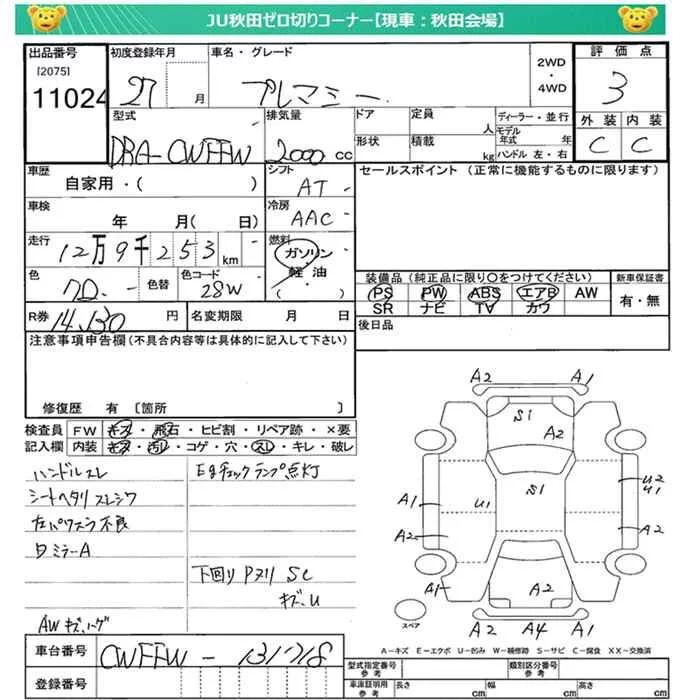 JU秋田ゼロ切りコーナー【現車：秋田会場】
出品番号 初度登録年月 車名・グレード 2WD ・ 4WD 評価点
[2075]
11024 27 月 プレマシー 3
型式 排気量 ドア 定員 人 ディーラー・並行 外装 内装
DBA-CWFFW 2000 cc 形状 積載 kg モデル年式 年 ハンドル 左・右 C C
車歴 シフト セールスポイント（正常に機能するものに限ります）
自家用・( ) AT
車検 冷房
年 月(日) AAC
走行 燃料
12万9千253km ガソリン
色 色替 色コード 軽油
28W ( )
装備品（純正品に限り〇をつけてください） 新車保証書
PS PW ABS エアB AW 有・無
SR ナビ TV カワ
R券 14,130 円 名変期限 月 日 後日品
注意事項申告欄（不具合内容等は具体的に記入して下さい）
修復歴 有 〔箇所 〕
検査員 FW キズ・飛石・ヒビ割・リペア跡・×要
記入欄 内装 キズ・汚レ・コゲ・穴・スレ・キレ・破レ
ハンドルスレ
シートヘタリ スレシワ
左パワスラ不良
タミラーA
AW キズ、ハゲ
Egチェックランプ点灯
下回り Pヌリ SC
キズ、U
A2 A1
S1
A2
A1 U1 S1 U2
U1
A2 A2
A1 A2
A2 A4 A1
スペア
A－キズ E－エクボ U－凹み W－補修跡 S－サビ C－腐食 XX－交換済
車台番号 CWFFW-131718
登録番号
型式指定番号 参考 類別区分番号 参考
車庫証明用 参考 長さ cm 幅 cm 高さ cm